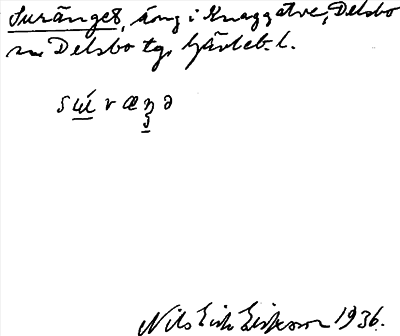 Suränget, äng i Knaggatve, Delsbo
sn Delsbo tg. Gävleb. l.
sɯ́ r æŋ ə
Nils Erik Eriksson 1936.